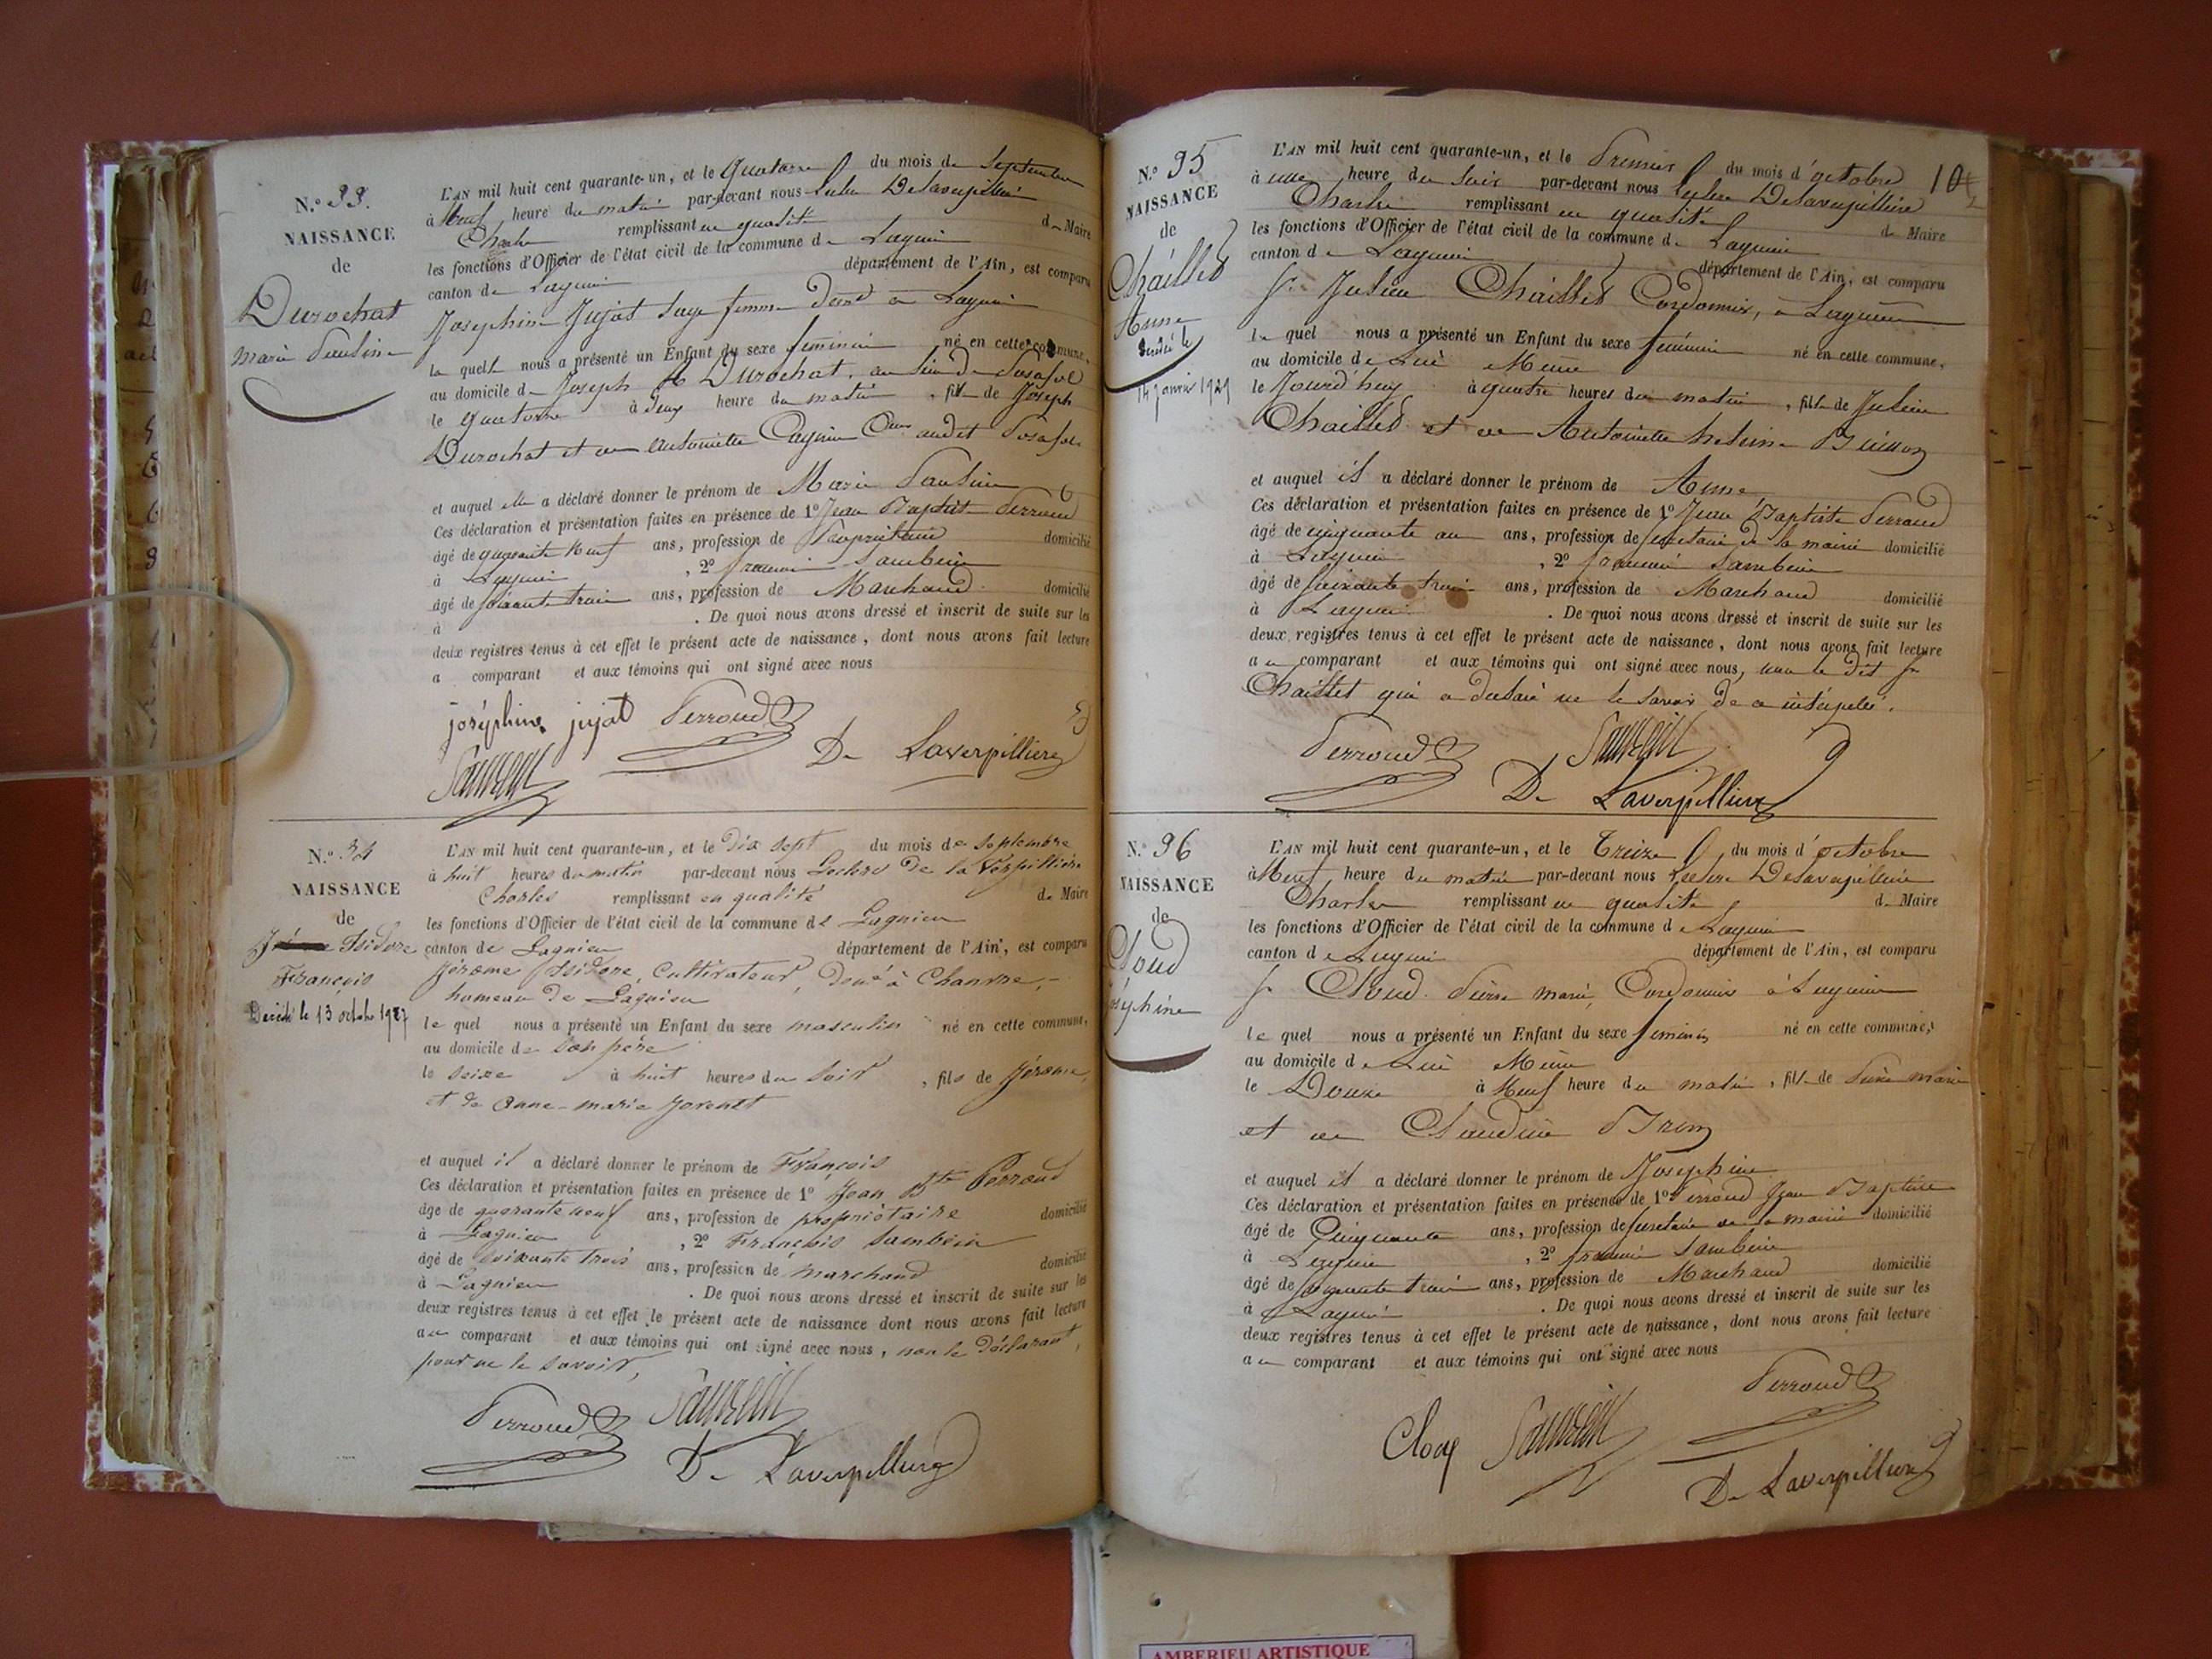 N.º 93.
NAISSANCE
de
Durochat
Marie Pauline
L'AN mil huit cent quarante-un, et le quatorze du mois de Septembre
à Neuf heure du matin par-devant nous Delaverpillière
Charles remplissant en qualité de Maire
les fonctions d'Officier de l'état civil de la commune de Lagnieu
canton de Lagnieu département de l'Ain, est comparu
Josephine Jujat Sage femme à Lagnieu
la quelle nous a présenté un Enfant du sexe feminin né en cette commune,
au domicile de Joseph Durochat, au
le quatorze à deux heure du matin, fille de Joseph
Durochat et de Antoinette audit
et auquel elle a déclaré donner le prénom de Marie Pauline
Ces déclaration et présentation faites en présence de 1º Jean Baptiste Perroud
âgé de quarante Neuf ans, profession de Propriétaire domicilié
à Lagnieu, 2º françois Sambein
âgé de soixante trois ans, profession de Marchand domicilié
à . De quoi nous avons dressé et inscrit de suite sur les
deux registres tenus à cet effet le présent acte de naissance, dont nous avons fait lecture
a comparant et aux témoins qui ont signé avec nous
joséphine jujat Perroud
Sambein De Laverpilliere
N.º 94
NAISSANCE
de
Isidore
François
Décédé le 13 octobre 1927
L'AN mil huit cent quarante-un, et le dix sept du mois de Septembre
à huit heures du matin par-devant nous Leclerc De la Verpillière
Charles remplissant en qualité de Maire
les fonctions d'Officier de l'état civil de la commune de Lagnieu
canton de Lagnieu département de l'Ain, est comparu
Jérome Isidore, Cultivateur, à
hameau de Lagnieu
le quel nous a présenté un Enfant du sexe masculin né en cette commune,
au domicile de son père
le seize à huit heures du soir, fils de Jérome,
et de Anne-marie
et auquel il a déclaré donner le prénom de François
Ces déclaration et présentation faites en présence de 1º Jean Bte Perroud
âgé de quarante neuf ans, profession de propriétaire domicilié
à Lagnieu, 2º François Sambein
âgé de soixante trois ans, profession de marchand domicilié
à Lagnieu . De quoi nous avons dressé et inscrit de suite sur les
deux registres tenus à cet effet le présent acte de naissance dont nous avons fait lecture
au comparant et aux témoins qui ont signé avec nous, non le déclarant,
pour ne le savoir,
Perroud Sambein
De Laverpilliere
N.º 95
NAISSANCE
de
Chaillet
Anne
décédé le
14 janvier 1929
L'AN mil huit cent quarante-un, et le Premier du mois d'octobre 10
à une heure du soir par-devant nous Leclerc Delaverpillière
Charles remplissant en qualité de Maire
les fonctions d'Officier de l'état civil de la commune de Lagnieu
canton de Lagnieu département de l'Ain, est comparu
Sr Julien Chaillet Cordonnier, à Lagnieu
le quel nous a présenté un Enfant du sexe féminin né en cette commune,
au domicile de Lui Même
le Jourd'huy à quatre heures du matin, fille de Julien
Chaillet et de Antoinette
et auquel il a déclaré donner le prénom de Anne
Ces déclaration et présentation faites en présence de 1º Jean Baptiste Perroud
âgé de cinquante ans, profession de secretaire de la mairie domicilié
à Lagnieu, 2º françois Sambein
âgé de soixante trois ans, profession de Marchand domicilié
à Lagnieu . De quoi nous avons dressé et inscrit de suite sur les
deux registres tenus à cet effet le présent acte de naissance, dont nous avons fait lecture
au comparant et aux témoins qui ont signé avec nous, non le dit Sr
Chaillet qui a déclaré ne le savoir de ce interpellé.
Perroud Sambein
De Laverpilliere
N.º 96
NAISSANCE
de
Cloud
Joséphine
L'AN mil huit cent quarante-un, et le Treize du mois d'octobre
à Neuf heure du matin par-devant nous Leclerc Delaverpillière
Charles remplissant en qualité de Maire
les fonctions d'Officier de l'état civil de la commune de Lagnieu
canton de Lagnieu département de l'Ain, est comparu
Sr Cloud Pierre marie, Cordonnier à Lagnieu
le quel nous a présenté un Enfant du sexe feminin né en cette commune,
au domicile de Lui Même
le Douze à Neuf heure du matin, fille de Pierre marie
et de Claudine
et auquel il a déclaré donner le prénom de Josephine
Ces déclaration et présentation faites en présence de 1º Perroud Jean Baptiste
âgé de Cinquante ans, profession de secretaire de la mairie domicilié
à Lagnieu, 2º françois Sambein
âgé de soixante trois ans, profession de Marchand domicilié
à Lagnieu . De quoi nous avons dressé et inscrit de suite sur les
deux registres tenus à cet effet le présent acte de naissance, dont nous avons fait lecture
au comparant et aux témoins qui ont signé avec nous
Perroud
Sambein
De Laverpilliere
AMBERIEU ARTISTIQUE